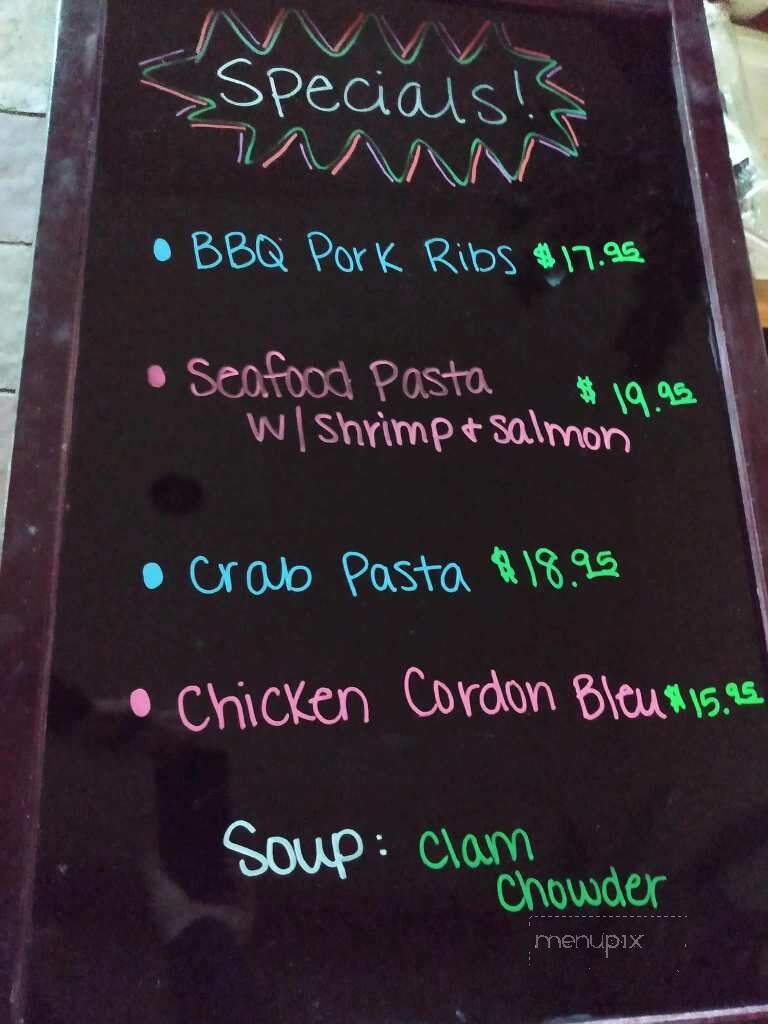 Specials!
• BBQ Pork Ribs $17.95
• Seafood Pasta $19.95
w/ shrimp + salmon
• Crab Pasta $18.95
• Chicken Cordon Bleu $15.95
Soup: Clam
Chowder
menupix